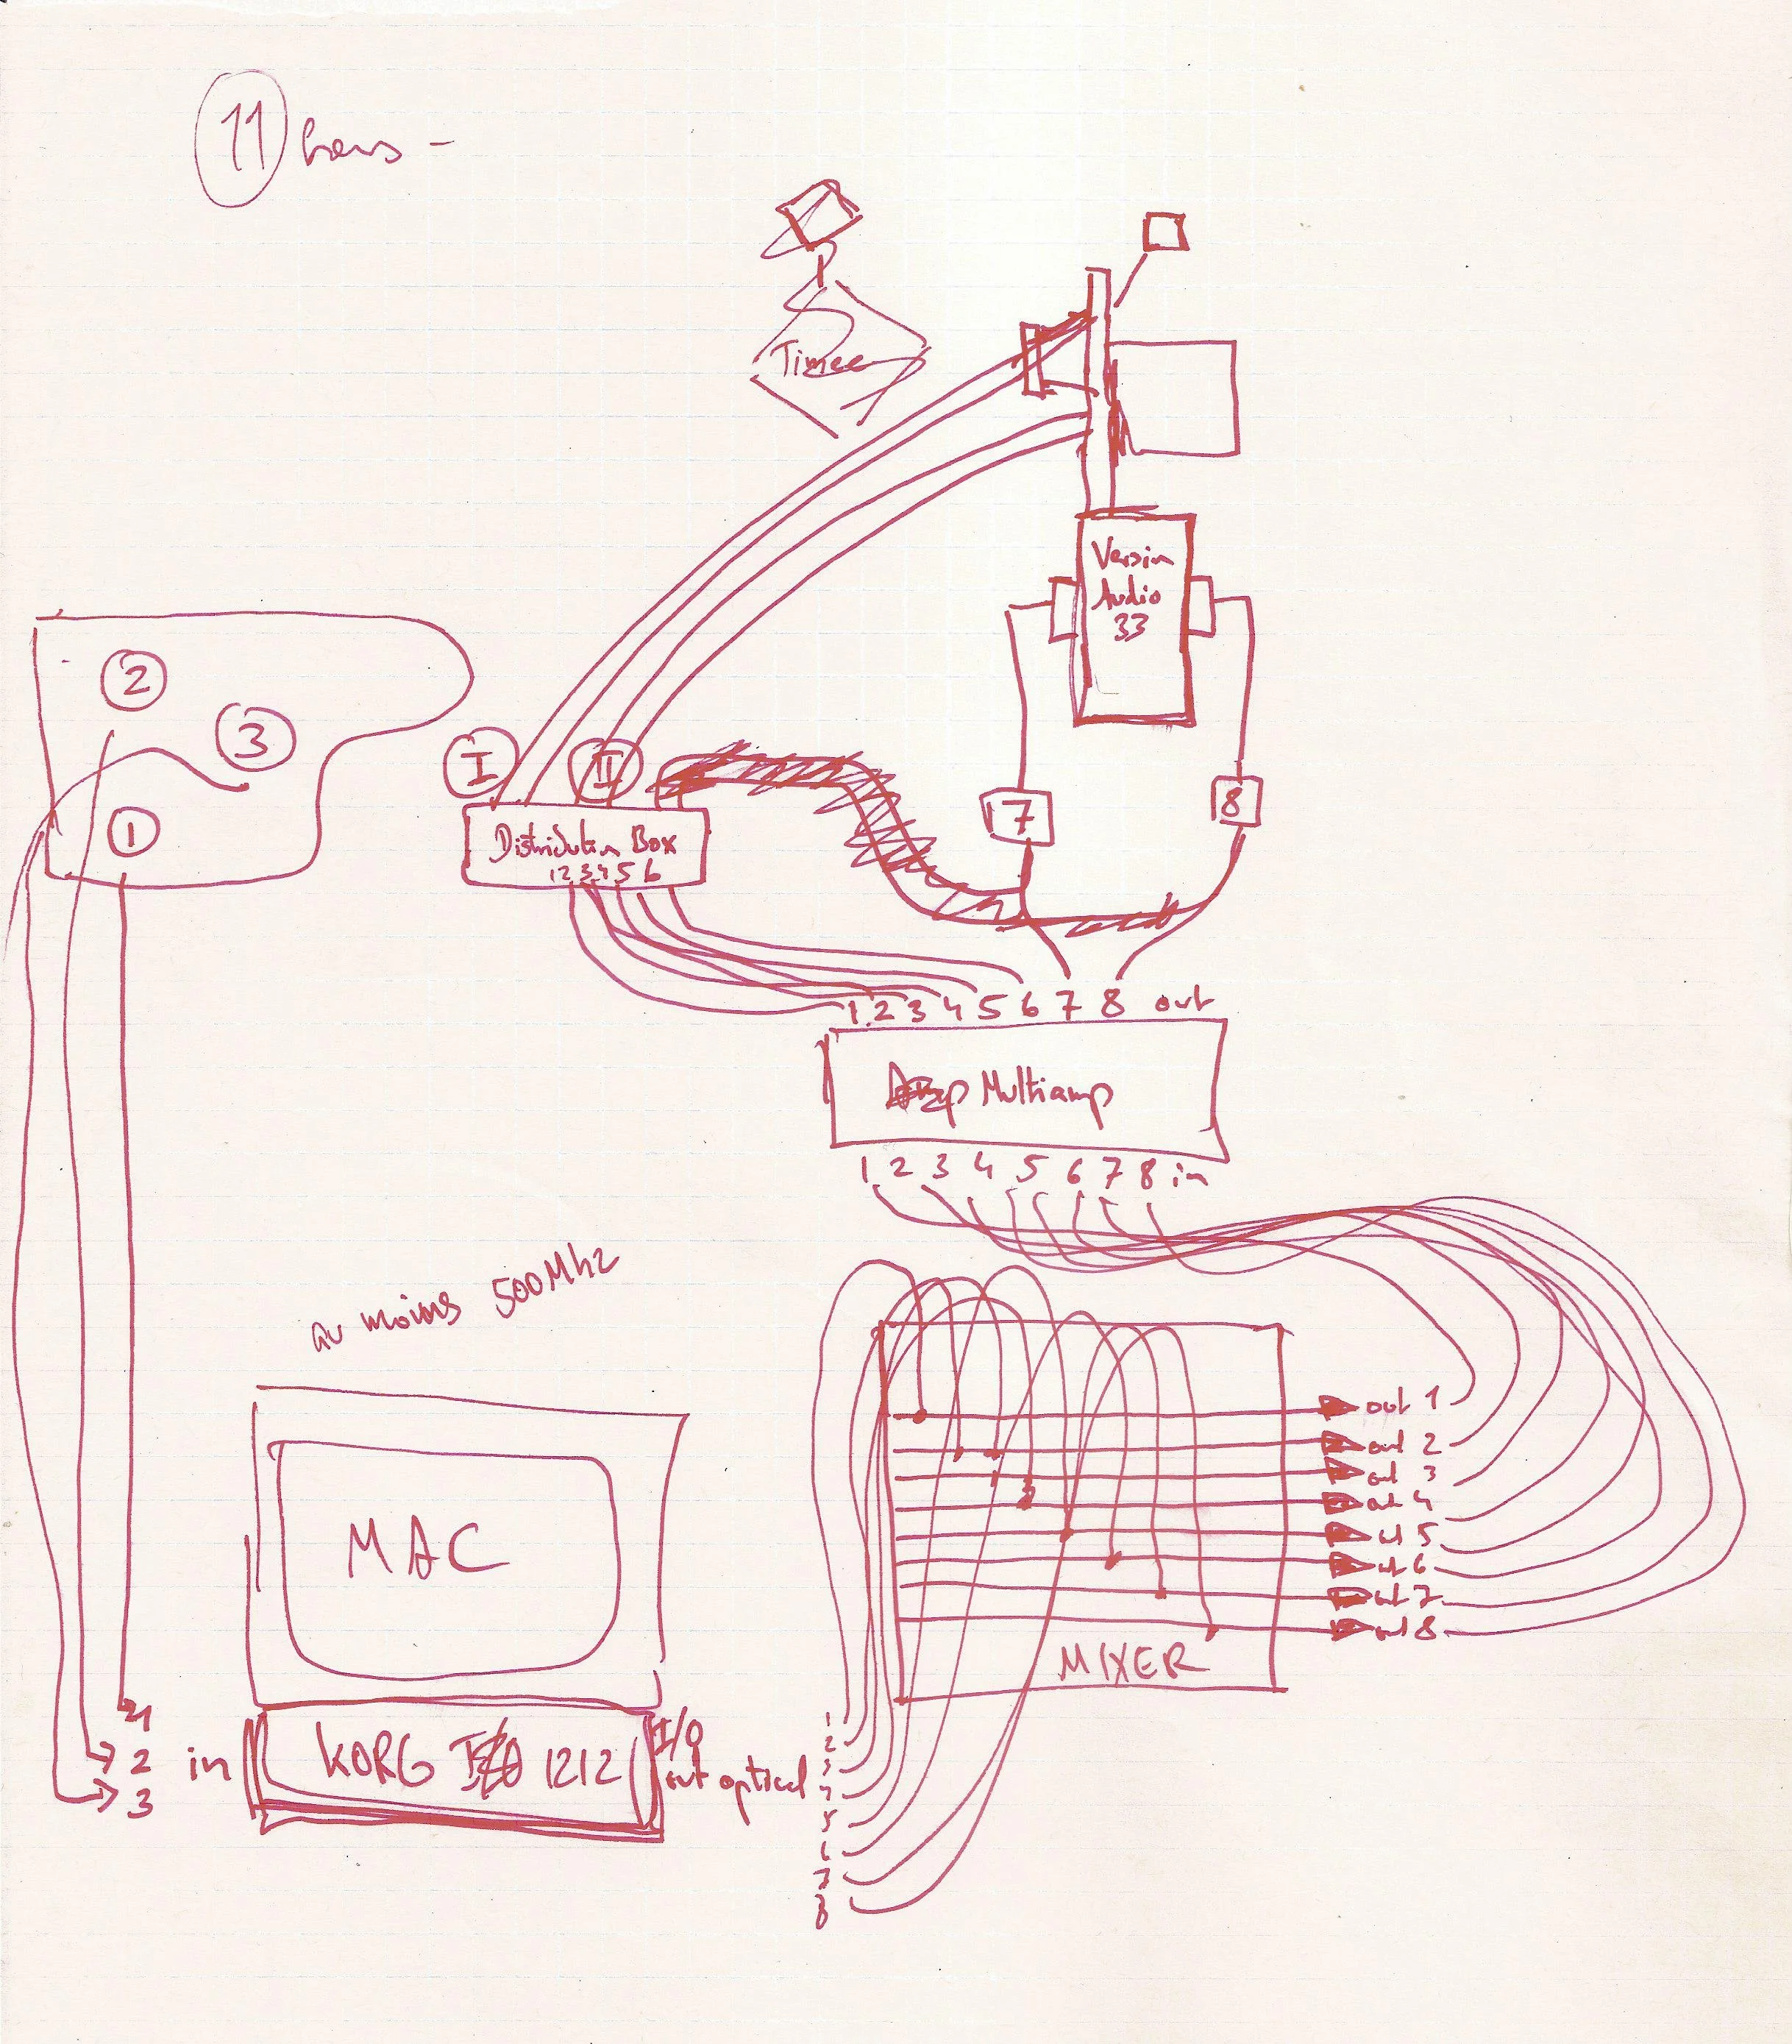 11 hours -
Timee
Version
Audio
33
2
3
1
I II
7 8
Distribution Box
1 2 3 4 5 6
1 2 3 4 5 6 7 8 out
Multiamp
1 2 3 4 5 6 7 8 in
au moins 500Mhz
MAC
out 1
out 2
out 3
out 4
out 5
out 6
out 7
out 8
MIXER
1
2
3
in
KORG I/O 1212
I/O
out optical
1
2
3
4
5
6
7
8